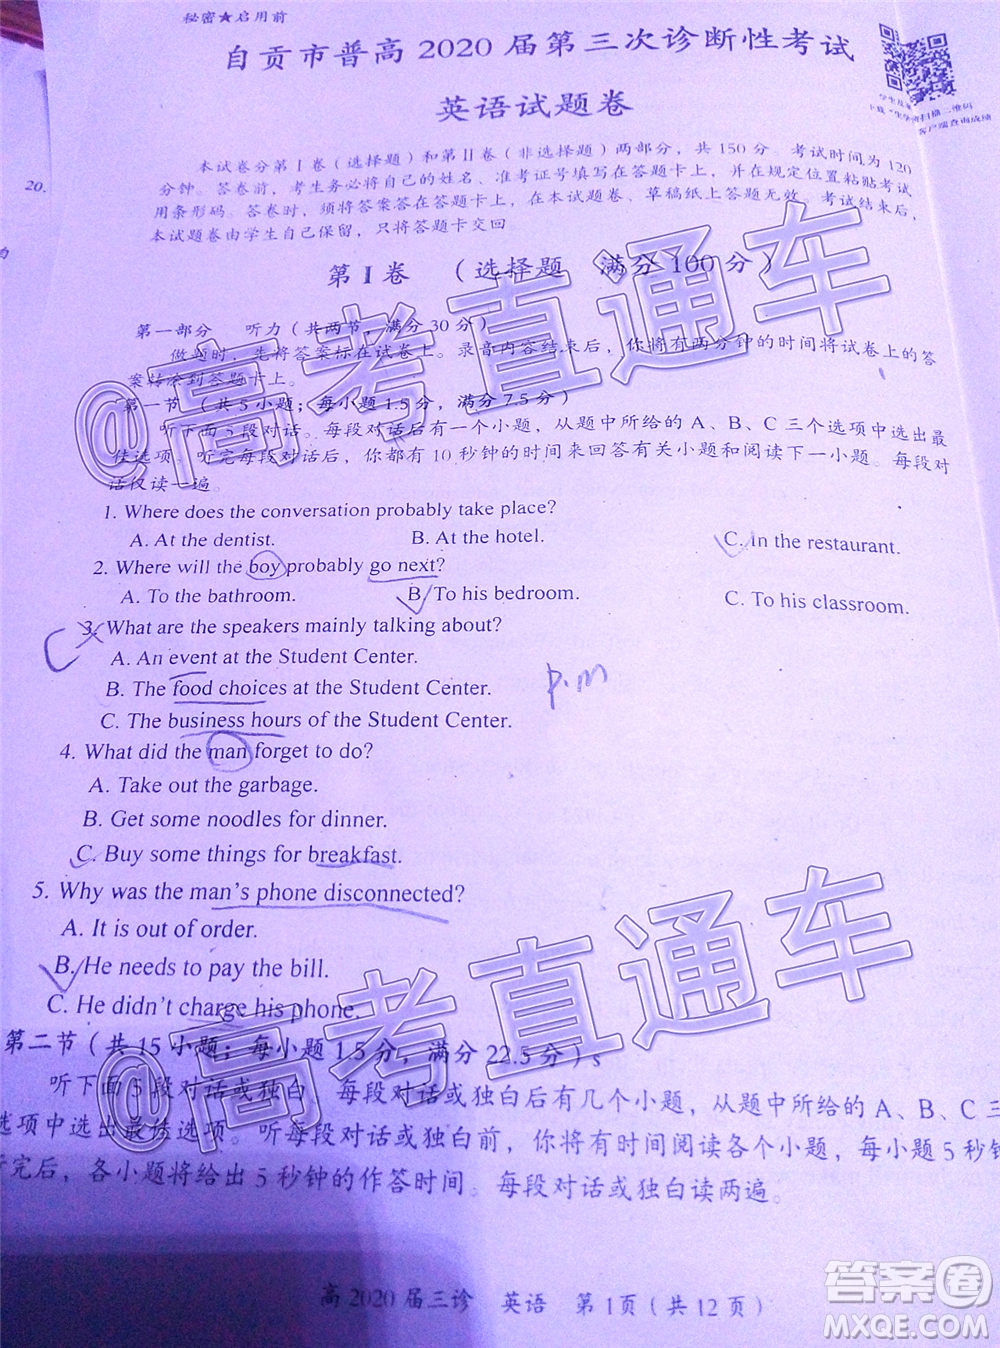 秘密★启用前
自贡市普高 2020 届第三次诊断性考试
英语试题卷
本试卷分第 I 卷（选择题）和第 II 卷（非选择题）两部分，共 150 分。考试时间为 120
分钟。答卷前，考生务必将自己的姓名、准考证号填写在答题卡上，并在规定位置粘贴考试
用条形码。答卷时，须将答案答在答题卡上，在本试题卷、草稿纸上答题无效。考试结束后，
本试题卷由学生自己保留，只将答题卡交回
第 I 卷 （选择题 满分 100 分）
第一部分 听力（共两节，满分 30 分）
做题时，先将答案标在试卷上。录音内容结束后，你将有两分钟的时间将试卷上的答
案转涂到答题卡上。
第一节（共 5 小题；每小题 1.5 分，满分 7.5 分）
听下面 5 段对话。每段对话后有一个小题，从题中所给的 A、B、C 三个选项中选出最
佳选项。听完每段对话后，你都有 10 秒钟的时间来回答有关小题和阅读下一小题。每段对
话仅读一遍。
1. Where does the conversation probably take place?
A. At the dentist. B. At the hotel. C. In the restaurant.
2. Where will the boy probably go next?
A. To the bathroom. B. To his bedroom. C. To his classroom.
3. What are the speakers mainly talking about?
A. An event at the Student Center.
B. The food choices at the Student Center.
C. The business hours of the Student Center.
p.m
4. What did the man forget to do?
A. Take out the garbage.
B. Get some noodles for dinner.
C. Buy some things for breakfast.
5. Why was the man's phone disconnected?
A. It is out of order.
B. He needs to pay the bill.
C. He didn't charge his phone.
第二节（共 15 小题；每小题 1.5 分，满分 22.5 分）s
听下面 5 段对话或独白。每段对话或独白后有几个小题，从题中所给的 A、B、C 三
选项中选出最佳选项。听每段对话或独白前，你将有时间阅读各个小题，每小题 5 秒
听完后，各小题将给出 5 秒钟的作答时间。每段对话或独白读两遍。
高 2020 届三诊 英语 第 1页（共 12 页）
20.
@高考直通车
@高考直通车
答案卷
MXQE.COM